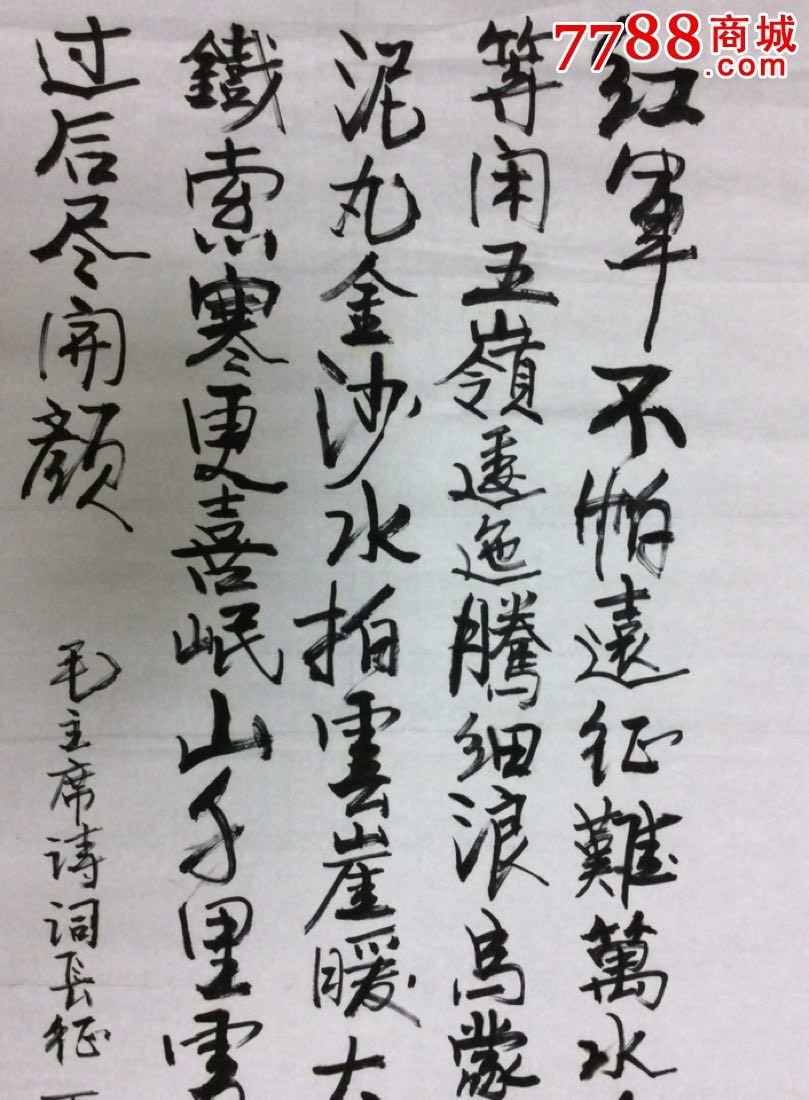 7788商城
.com
红軍不怕遠征難萬水
等闲五嶺逶迤騰细浪乌蒙
泥丸金沙水拍雲崖暖大
鐵索寒更喜岷山千里雪
过后尽开颜
毛主席诗词長征